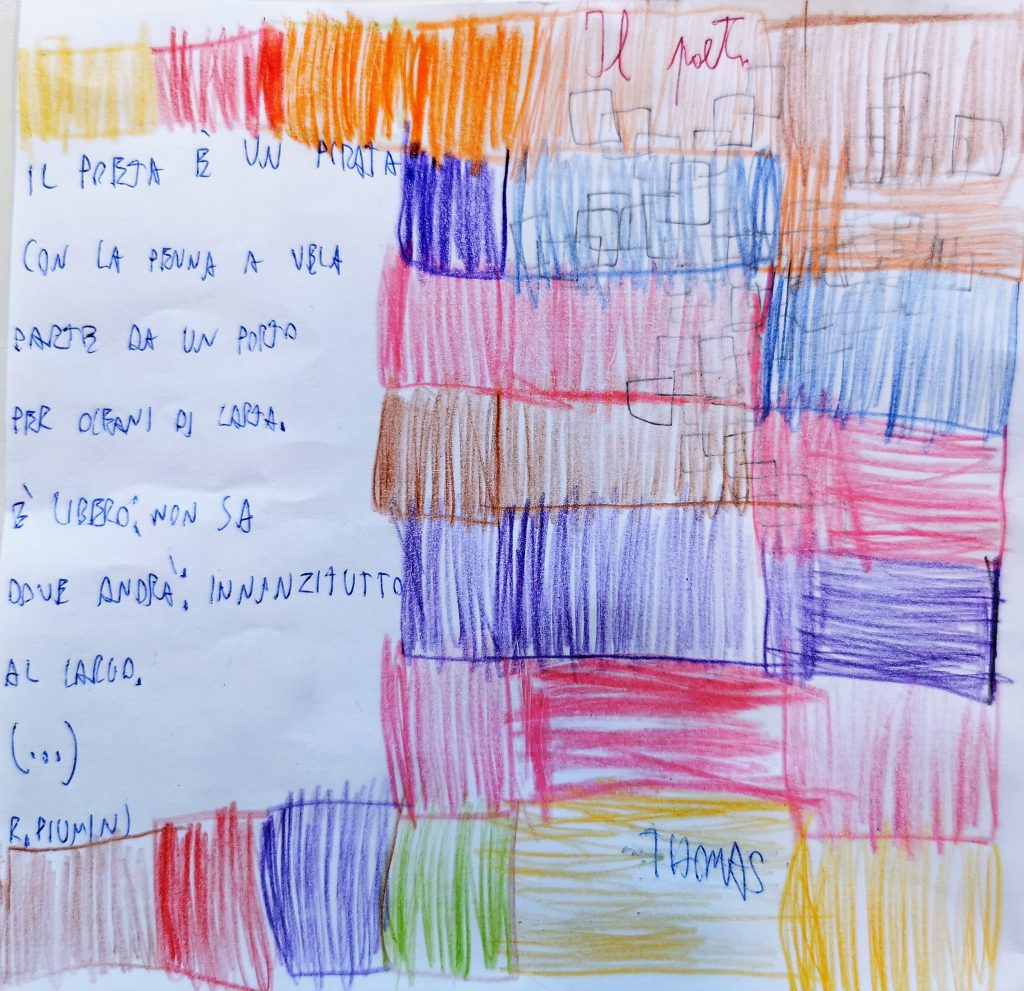 Il poeta
IL POETA È UN PIRATA
CON LA PENNA A VELA
PARTE DA UN PORTO
PER OCEANI DI CARTA.
È LIBERO: NON SA
DOVE ANDRÀ: INNANZITUTTO
AL LARGO.
(...)
R. PIUMINI
THOMAS